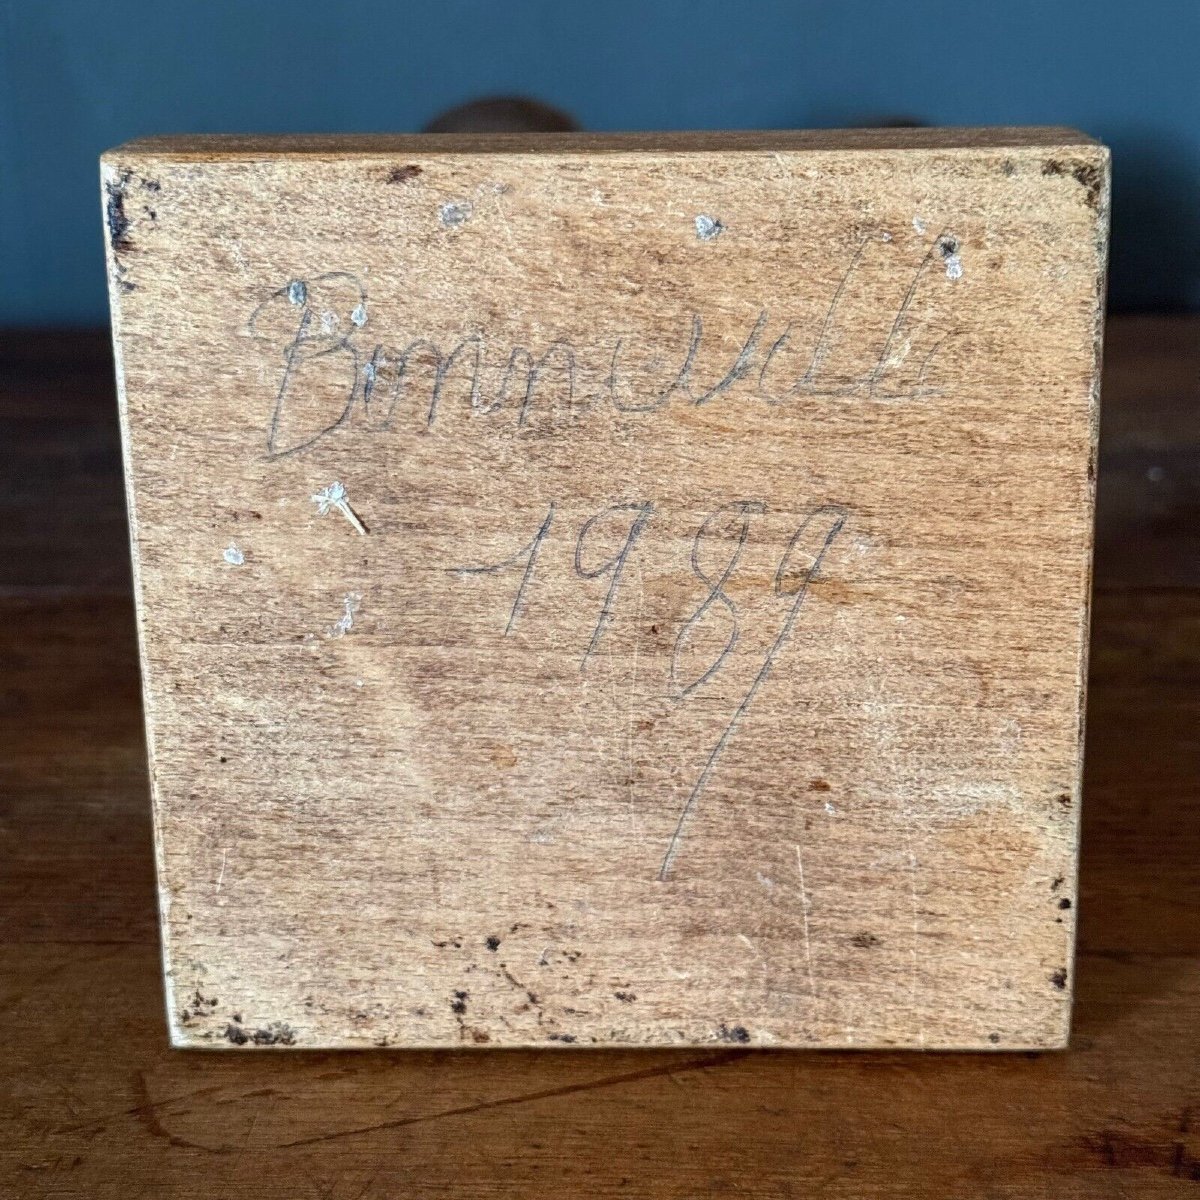 Bonneville
1989